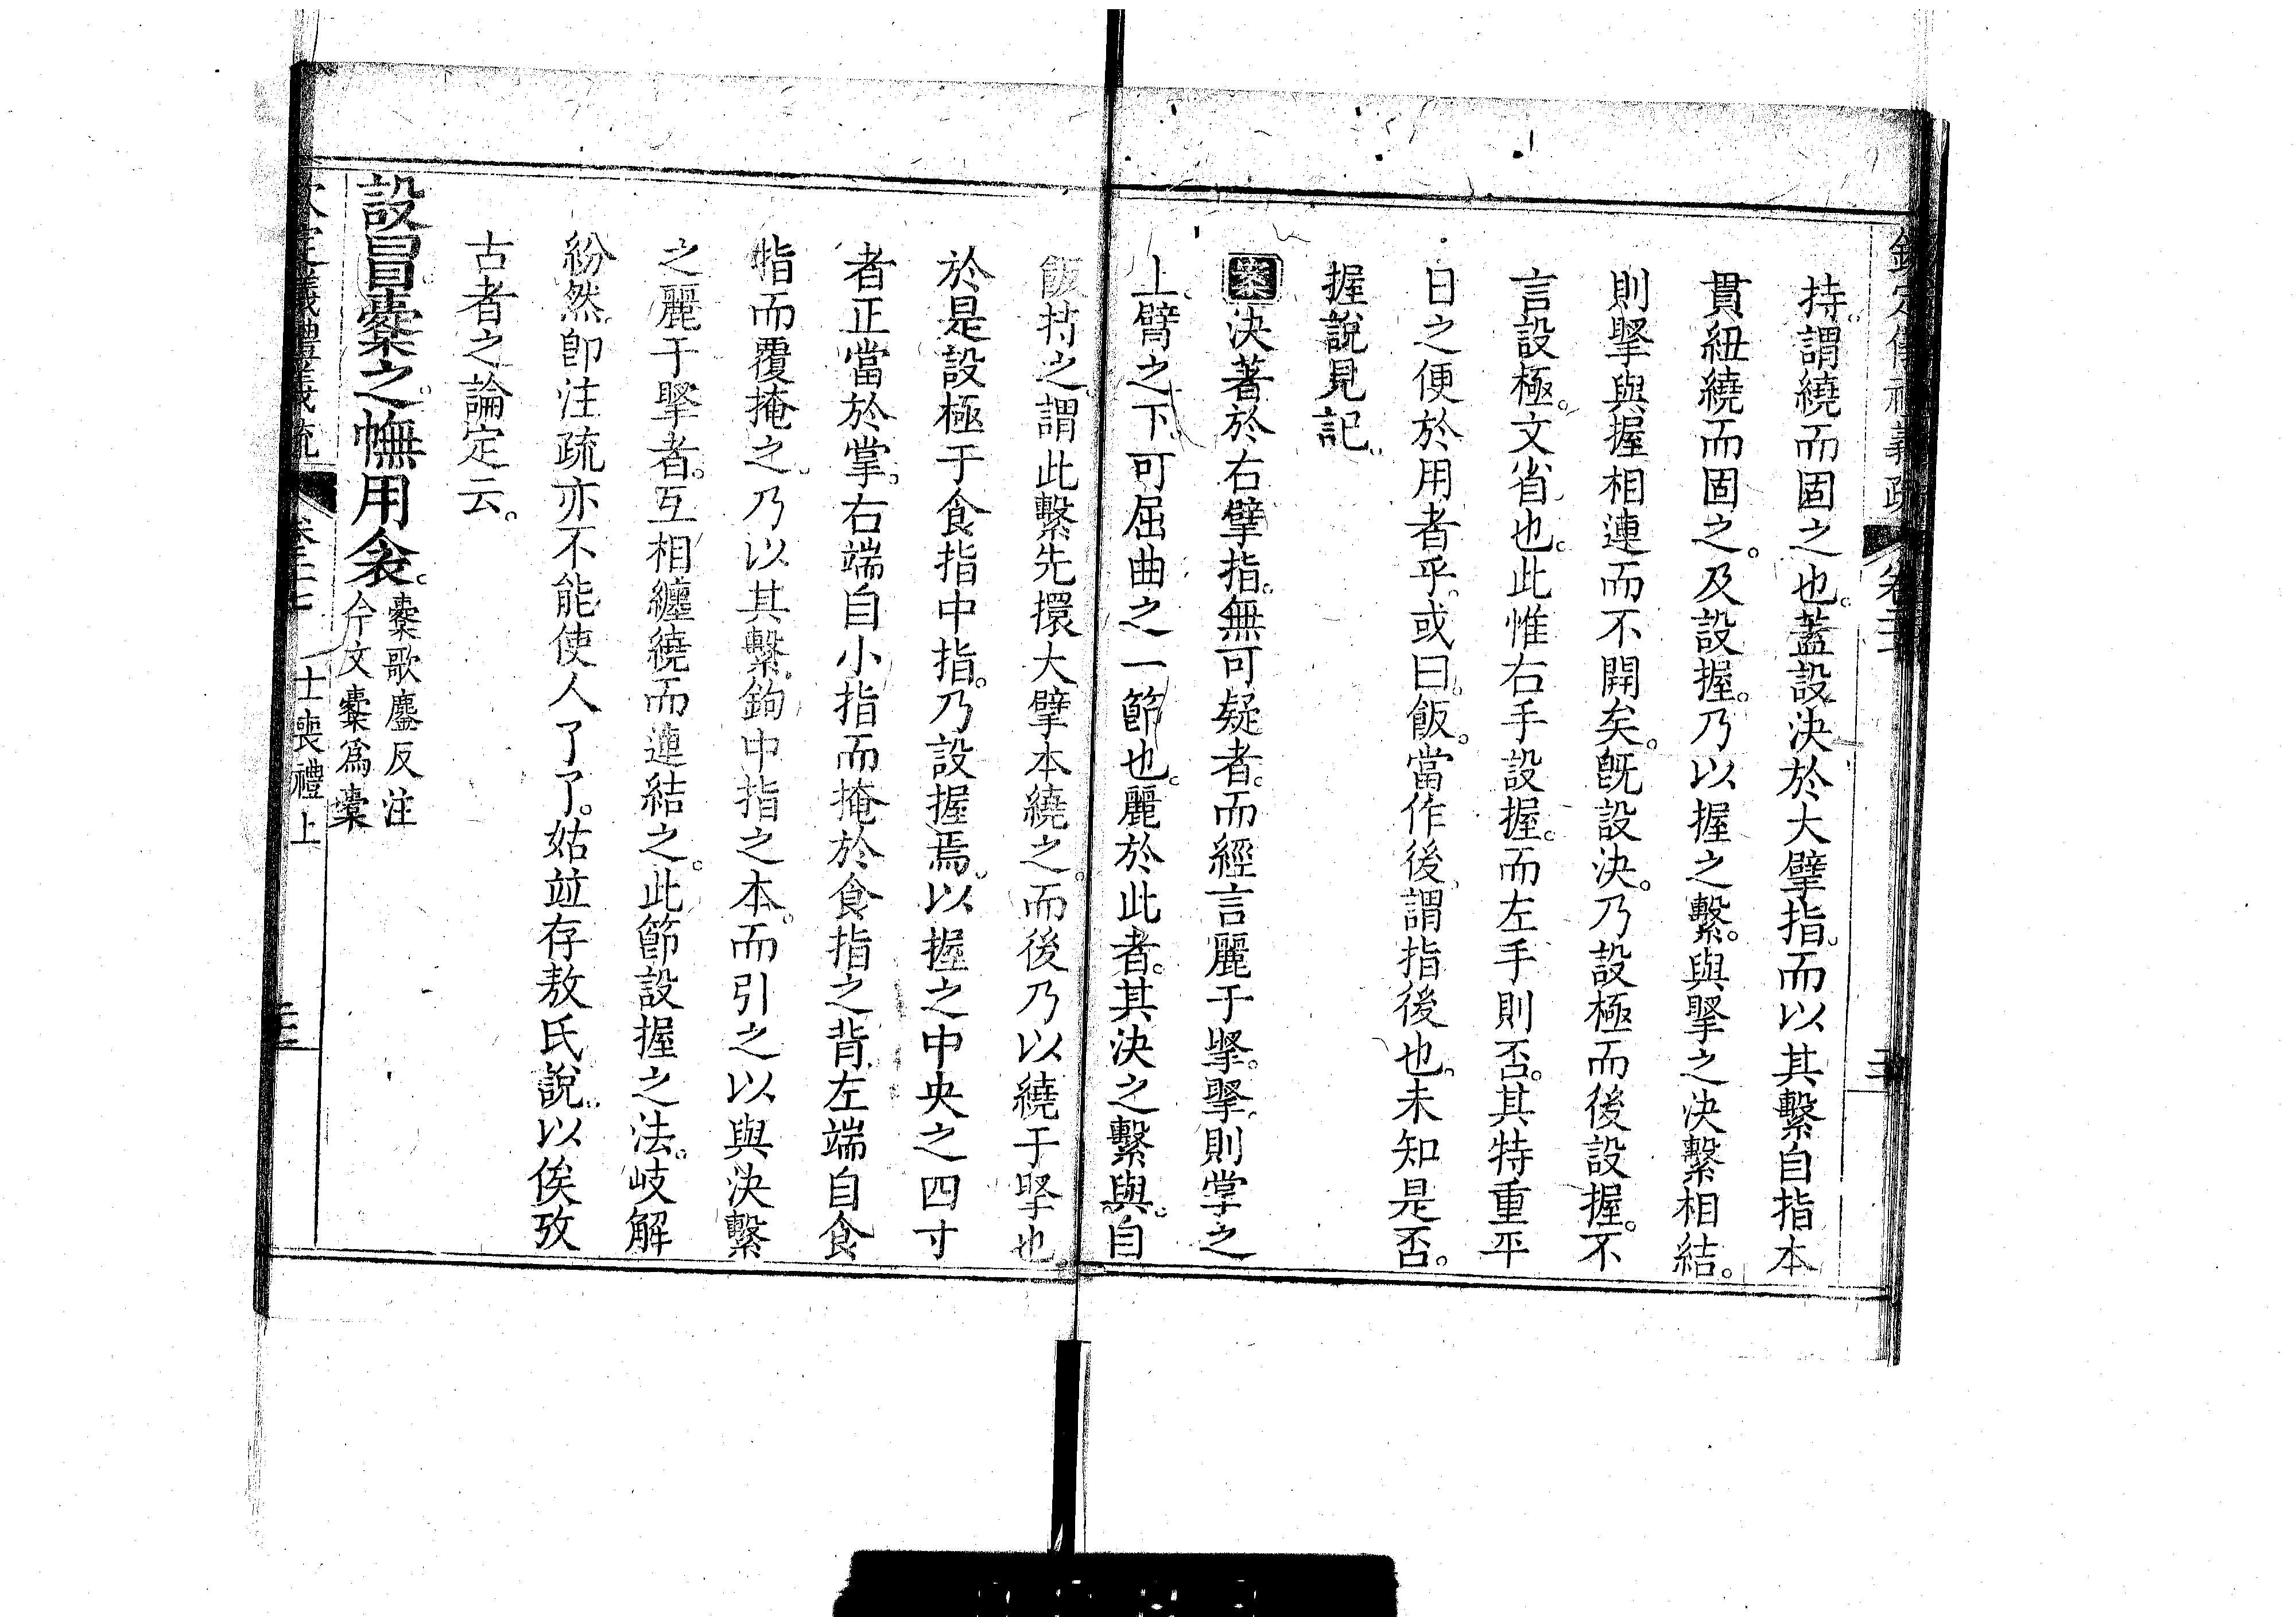 持。謂繞而固之也。蓋設決於大擘指。而以其繫自指本
貫紐繞而固之。及設握。乃以握之繫。與掔之決繫相結。
則掔與握相連而不開矣。旣設決。乃設極而後設握。不
言設極。文省也。此惟右手設握。而左手則否。其特重平
日之便於用者乎。或曰。飯。當作後。謂指後也。未知是否。
握說見記。
案決著於右擘指。無可疑者。而經言麗于掔。掔。則掌之
上。臂之下。可屈曲之一節也。麗於此者。其決之繫與。自
飯持之。謂此繫先環大擘本繞之。而後乃以繞于掔也
於是設極于食指中指。乃設握焉。以握之中央之四寸
者正當於掌。右端自小指而掩於食指之背。左端自食
指而覆掩之。乃以其繫。鉤中指之本。而引之以與決繫
之麗于掔者。互相纏繞而連結之。此節設握之法。岐解
紛然。卽注疏亦不能使人了了。姑竝存敖氏說。以俟攷
古者之論定云。
設冒櫜之。幠用衾。櫜歌鏖反注
今文櫜爲橐
欽定儀禮義疏 卷二十七 士喪禮上